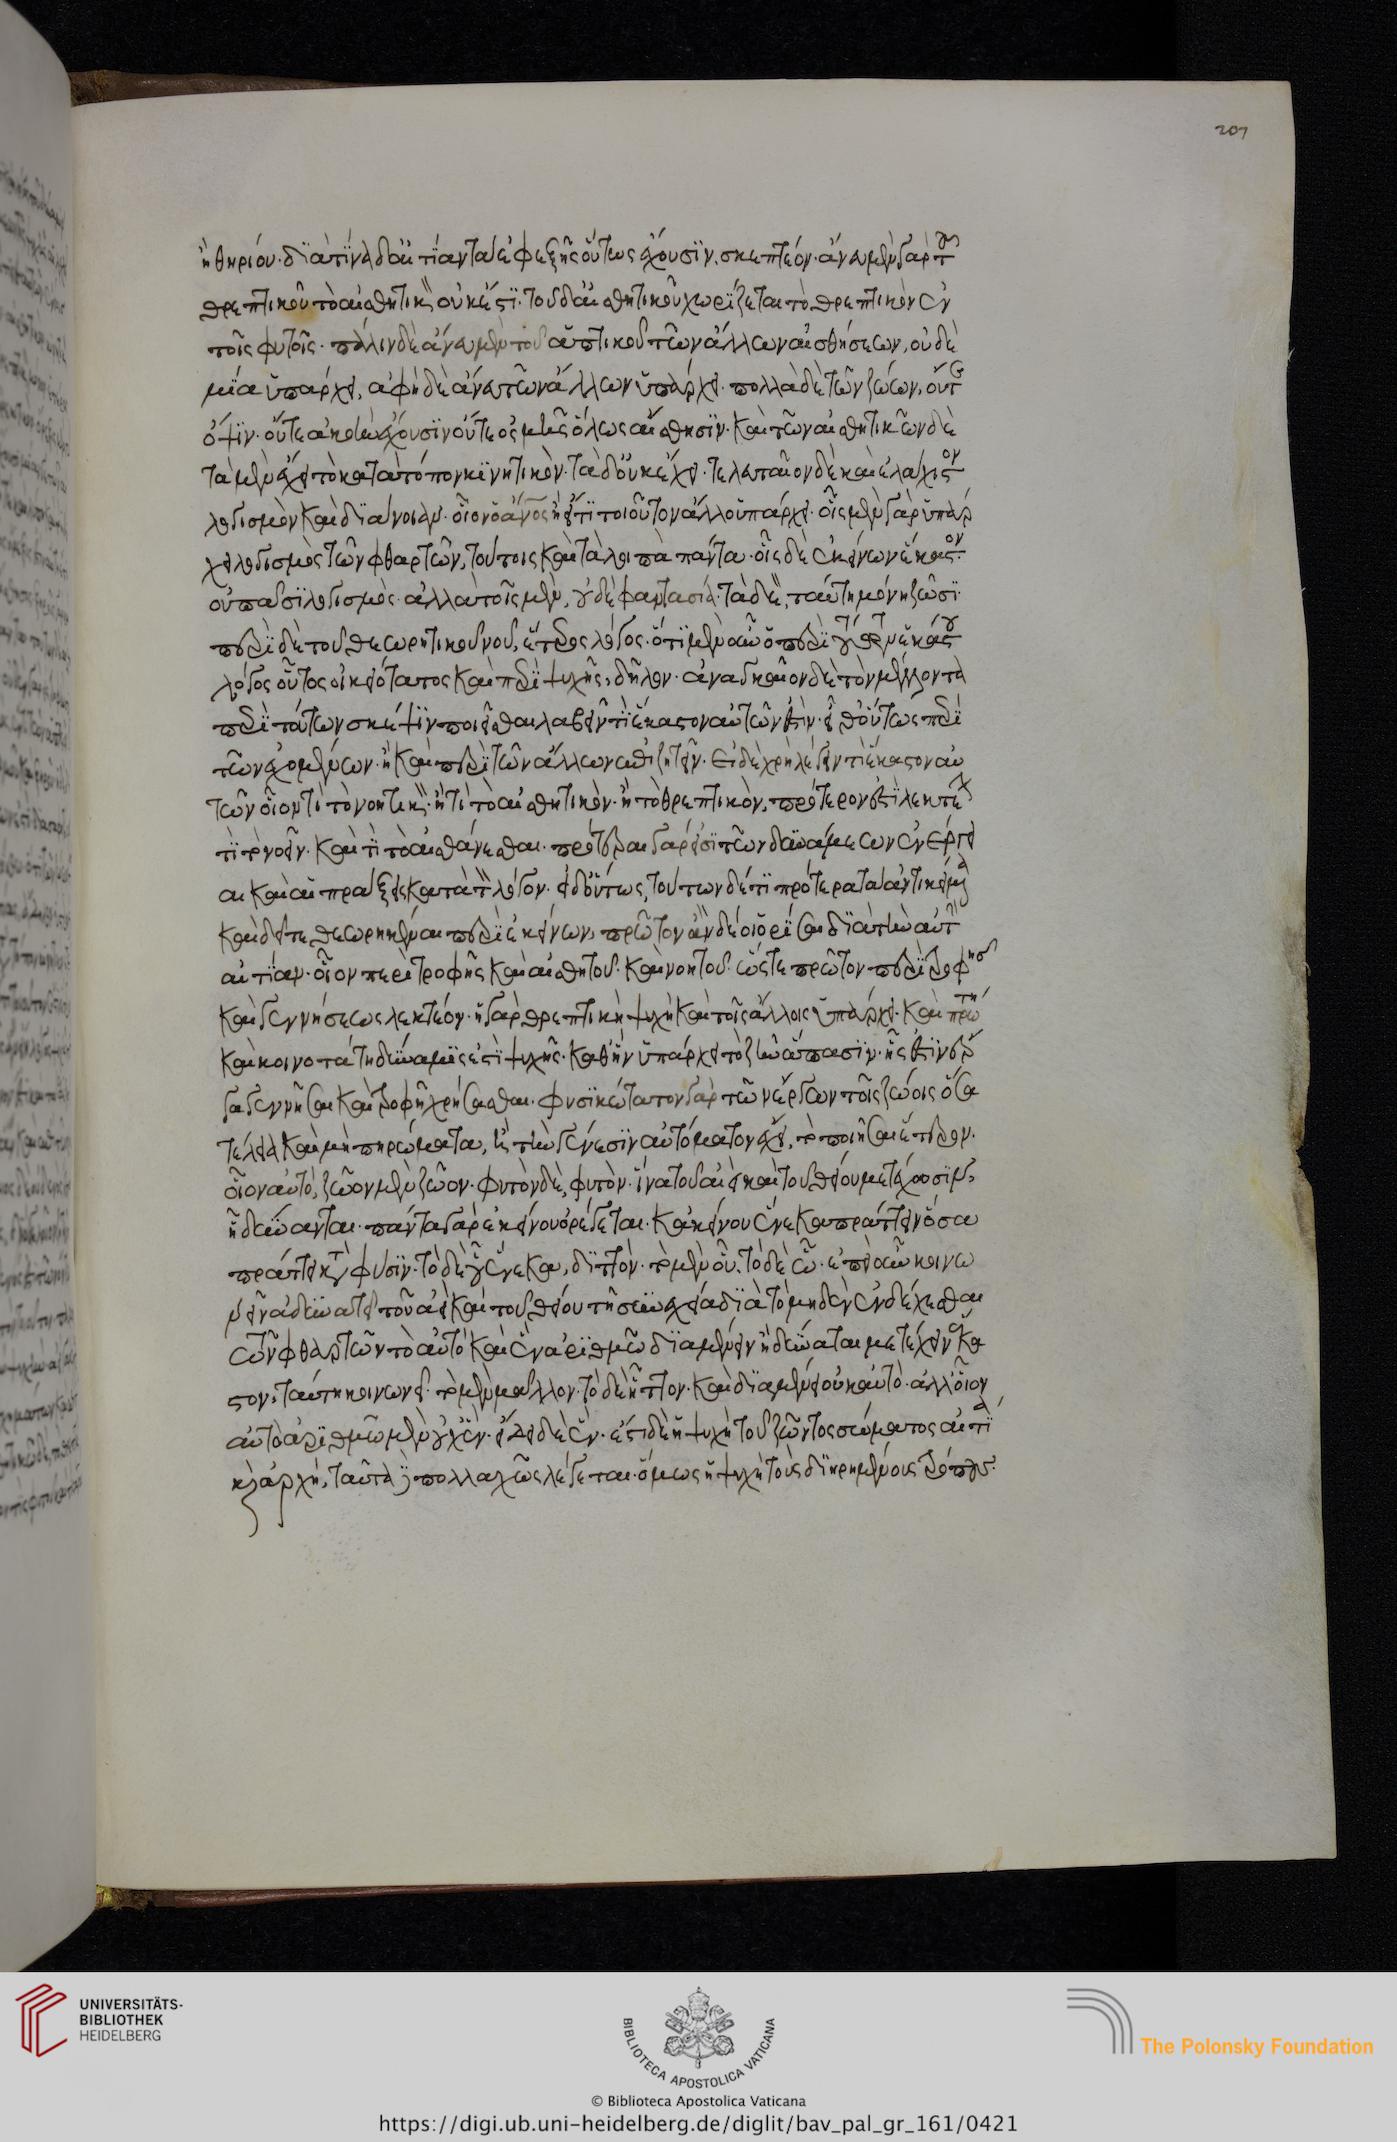 207
ἢ θηρίου· διὰ τίνα δ' αἰτίαν τὰ ἐφεξῆς οὕτως ἔχουσϊν, σκεπτέον· ἄνευ μὲν γὰρ τοῦ
θρεπτικοῦ τὸ αἰσθητικὸν οὐκ ἔστϊ· τοῦ δ' αἰσθητικοῦ χωρΐζεται τὸ θρεπτικὸν ἐν
τοῖς φυτοῖς· πάλιν δὲ ἄνευ μὲν τοῦ ἁπτικοῦ τῶν ἄλλων αἰσθήσεων, οὐδε
μία ὑπάρχει, ἁφὴ δὲ ἄνευ τῶν ἄλλων ὑπάρχει· πολλὰ δὲ τῶν ζώων, οὔτε
ὄψϊν· οὔτε ἀκοὴν ἔχουσϊν οὔτε ὀσμῆς ὅλως αἴσθησϊν· καὶ τῶν αἰσθητικῶν δὲ
τὰ μὲν ἔχει τὸ κατὰ τόπον κϊνητικὸν· τὰ δ' οὐκ ἔχει· τελευταῖον δὲ καὶ ἐλάχιστον
λογισμὸν καὶ δϊάνοιαν· οἷον ὁ ἄνος ἢ εἴ τϊ τοιοῦτον ἄλλο ὑπάρχει· οἷς μὲν γὰρ ὑπάρ
χει λογισμὸς τῶν φθαρτῶν, τούτοις καὶ τὰ λοιπὰ πάντα· οἷς δὲ ἐκείνων ἕκαστον
οὐ πᾶσϊ λογισμὸς· ἀλλὰ τοῖς μὲν, οὐδὲ φαντασία· τὰ δὲ, ταύτη μόνη ζῶσϊ·
περὶ δὲ τοῦ θεωρητικοῦ νοῦ, ἕτερος λόγος· ὅτϊ μὲν οὖν ὁ περὶ τούτων ἑκάστου
λόγος οὗτος οἰκειότατος καὶ περὶ ψυχῆς, δῆλον· ἀναγκαῖον δὲ τὸν μέλλοντα
περὶ τούτων σκέψϊν ποιεῖσθαι λαβεῖν τΐ ἕκαστον αὐτῶν ἐστὶν· εἶθ' οὕτως περὶ
τῶν ἐχομένων· ἢ καὶ περὶ τῶν ἄλλων ἐπιζητεῖν· εἰ δὲ χρὴ λέγειν τί ἕκαστον αὐ
τῶν οἷον τί τὸ νοητικὸν· ἢ τί τὸ αἰσθητικὸν· ἢ τὸ θρεπτικὸν, πρότερον ἔτϊ λεκτέον
τί τὸ νοεῖν· καὶ τί τὸ αἰσθάνεσθαι· πρότεραι γάρ εἰσϊ τῶν δυνάμεων αἱ ἐνέργει
αι καὶ αἱ πράξεις κατὰ τὸν λόγον· εἰ δ' οὕτως, τούτων δέ τϊ πρότερα τὰ ἀντικείμενα
καὶ δεῖ τεθεωρηκέναι περὶ ἐκείνων, πρῶτον ἂν δέοι ὁρΐσαι δϊὰ τὴν αὐτὴν
αἰτίαν· οἷον περὶ τροφῆς καὶ αἰσθητοῦ· καὶ νοητοῦ· ὥστε πρῶτον περὶ τροφῆς
καὶ γεννήσεως λεκτέον· ἡ γὰρ θρεπτικὴ ψυχὴ καὶ τοῖς ἄλλοις ὑπάρχει· καὶ πρώτη
καὶ κοινοτάτη δύναμΐς ἐστὶ ψυχῆς· καθ' ἣν ὑπάρχει τὸ ζῆν ἅπασϊν· ἧς ἐστὶν ἔρ
γα γεννῆσαι καὶ τροφῆ χρήσασθαι· φυσϊκώτατον γὰρ τῶν ἔργων τοῖς ζώοις ὅσα
τέλεια καὶ μὴ πηρώματα, ἢ τὴν γένεσϊν αὐτόματον ἔχει, τὸ ποιῆσαι ἕτερον·
οἷον αὐτὸ, ζῶον μὲν ζῶον· φυτὸν δὲ, φυτὸν· ἵνα τοῦ ἀεὶ καὶ τοῦ θείου μετέχουσϊν,
ἧ δύνανται· πάντα γὰρ ἐκείνου ὀρέγεται· κἀκείνου ἕνεκα πράττει ὅσα
πράττει κατὰ φύσϊν· τὸ δὲ οὗ ἕνεκα, διττόν· τὸ μὲν οὗ· τὸ δὲ ὧ· ἐπεὶ οὖν κοινω
νεῖν ἀδυνατεῖ τοῦ ἀεὶ καὶ τοῦ θείου τῆ συνεχεία δϊὰ τὸ μηδὲν ἐνδέχεσθαι
τῶν φθαρτῶν τὸ αὐτὸ καὶ ἓν ἀρϊθμῶ δϊαμένειν ἧ δύναται μετέχειν ἕκα
στον, ταύτη κοινωνεῖ· τὸ μὲν μᾶλλον· τὸ δὲ ἧττον· καὶ δϊαμένει οὐκ αὐτὸ· ἀλλ' οἷον
αὐτὸ ἀρϊθμῶ μὲν οὐχ ἓν· εἴδει δὲ ἓν· ἔστι δὲ ἡ ψυχὴ τοῦ ζῶντος σώματος αἰτία
καὶ ἀρχή, ταῦτα δὲ πολλαχῶς λέγεται· ὁμοίως ἡ ψυχὴ τοὺς διηρημένους τρόπους·
UNIVERSITÄTS-
BIBLIOTHEK
HEIDELBERG
BIBLIOTECA APOSTOLICA VATICANA
The Polonsky Foundation
© Biblioteca Apostolica Vaticana
https://digi.ub.uni-heidelberg.de/diglit/bav_pal_gr_161/0421